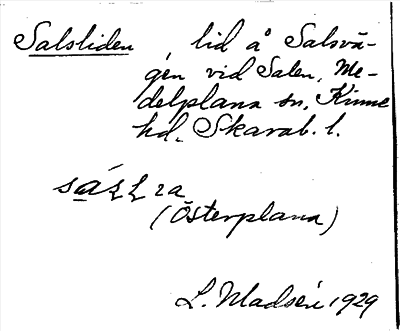 Salsliden, lid å Salsvä-
gen vid Salen, Me-
delplana sn, Kinne
hd. Skarab. l.
(Österplana)
L. Madsén 1929